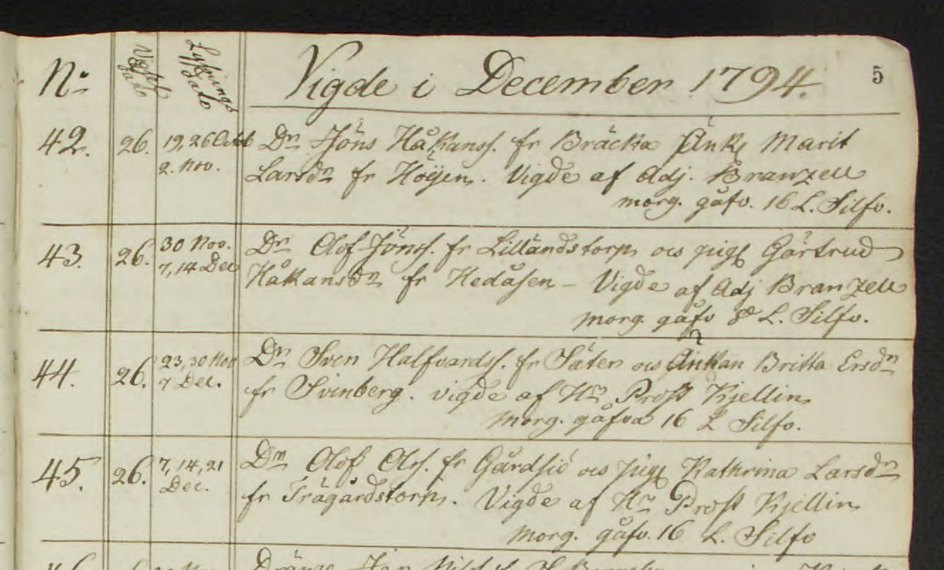 No Vigde i December 1794. 5
42. 26. 19, 26 Octob Dn Jöns Håkanss. fr Bräcka Änk Marit
2. Nov. Larsdn fr Höÿen. Vigde af Adj. Branzell
morg. gåfv. 16 L. Silfv.
43. 26. 30 Nov. Dn Olof Jönss. fr Lillåndstorp och pig Gärtrud
7, 14 Dec Håkansdn fr Hedåsen - Vigde af Adj Branzell
morg. gåfv 8 L. Silfv.
44. 26. 23, 30 Nov Dn Sven Halfvardss. fr Säter och Änkan Britta Ersdn
7 Dec. fr Svinberg. vigde af Hr Prost Kjellin
morg. gåfva 16 L Silfv.
45. 26. 7, 14, 21 Dn Olof Ols. fr Gårdsiö och pig Kathrina Larsdn
Dec. fr Trägårdstorp. Vigde af Hr Prost Kjellin
morg. gåfv. 16 L. Silfv